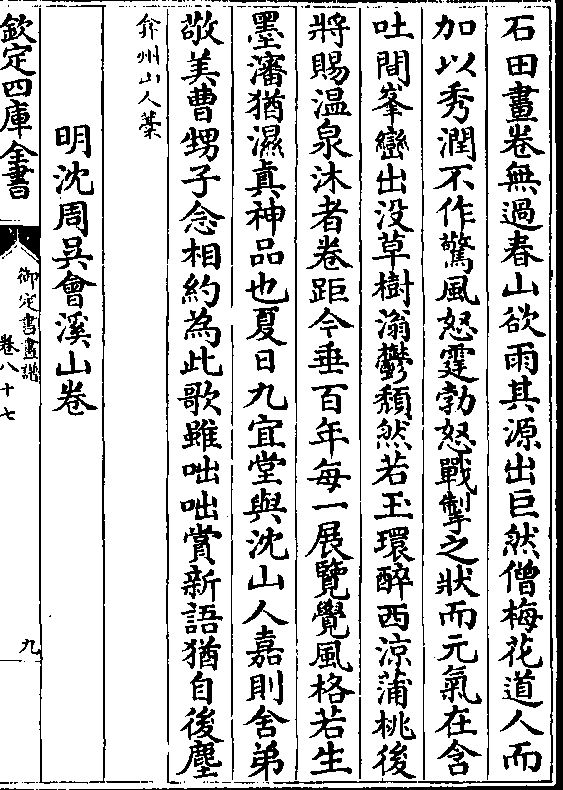 石田畫卷無過春山欲雨其源出巨然僧梅花道人而
加以秀潤不作驚風怒霆勃怒戰掣之狀而元氣在含
吐間峯巒出没草樹滃鬱頽然若玉環醉西涼蒲桃後
將賜温泉沐者卷距今垂百年每一展覽覺風格若生
墨瀋猶濕真神品也夏日九宜堂與沈山人嘉則舍弟
敬美曹甥子念相約為此歌雖咄咄賞新語猶自後塵
弇州山人藁
明沈周吳會溪山卷
欽定四庫全書
御定書畫譜
卷八十七
九